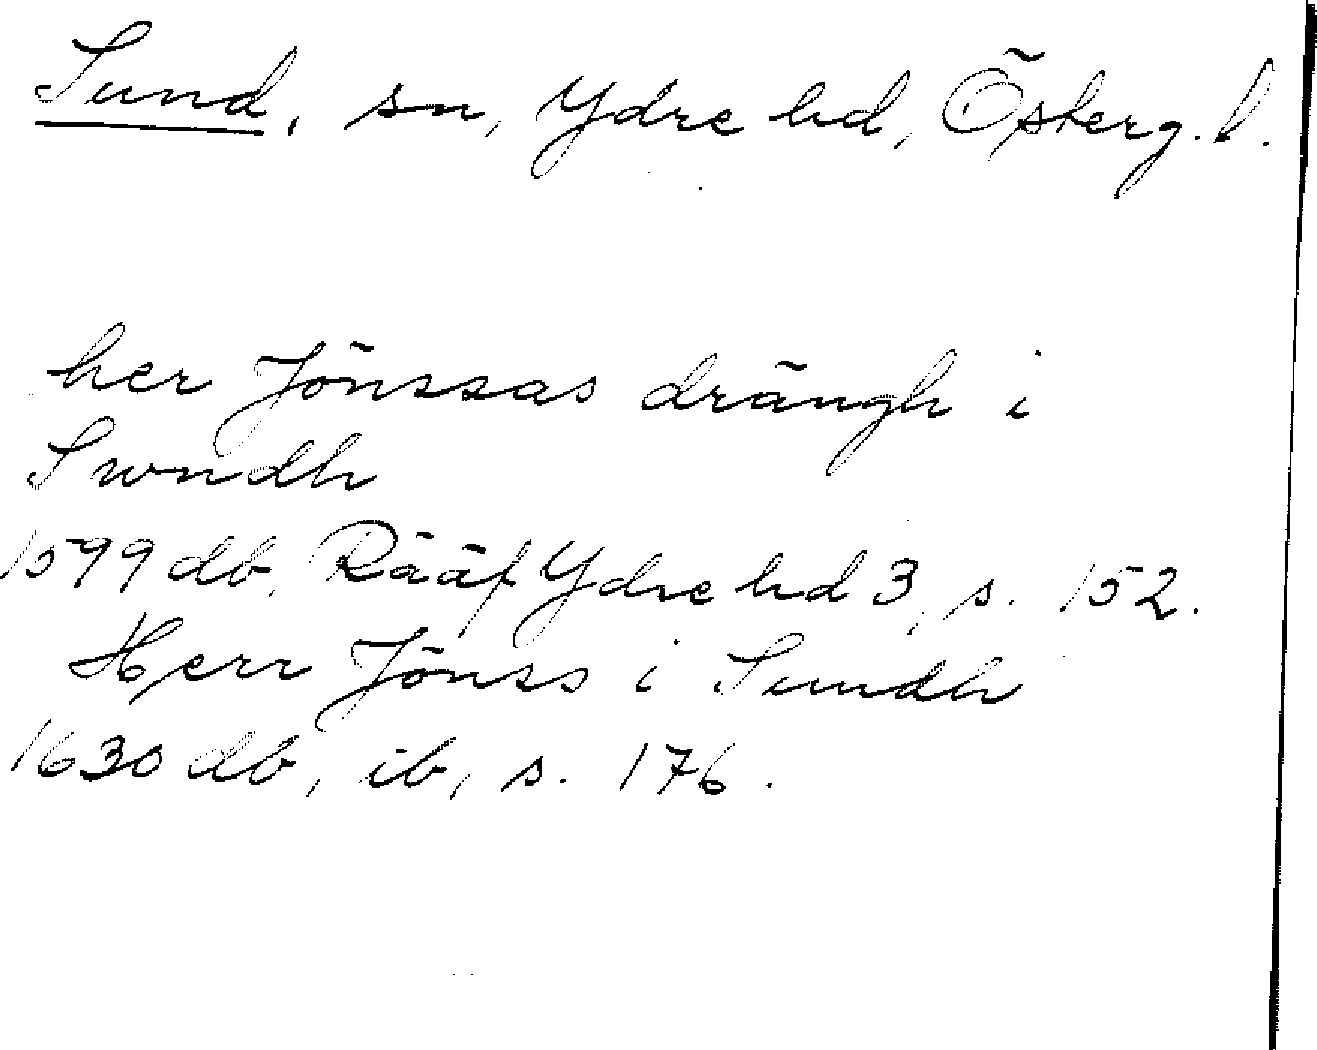 Sund, sn, Ydre hd, Österg. l.
her Jönssas drängh i
Swndh
1599 db, Rääf Ydre hd 3, s. 152.
Herr Jönss i Sundh
1630 db, ib, s. 176.